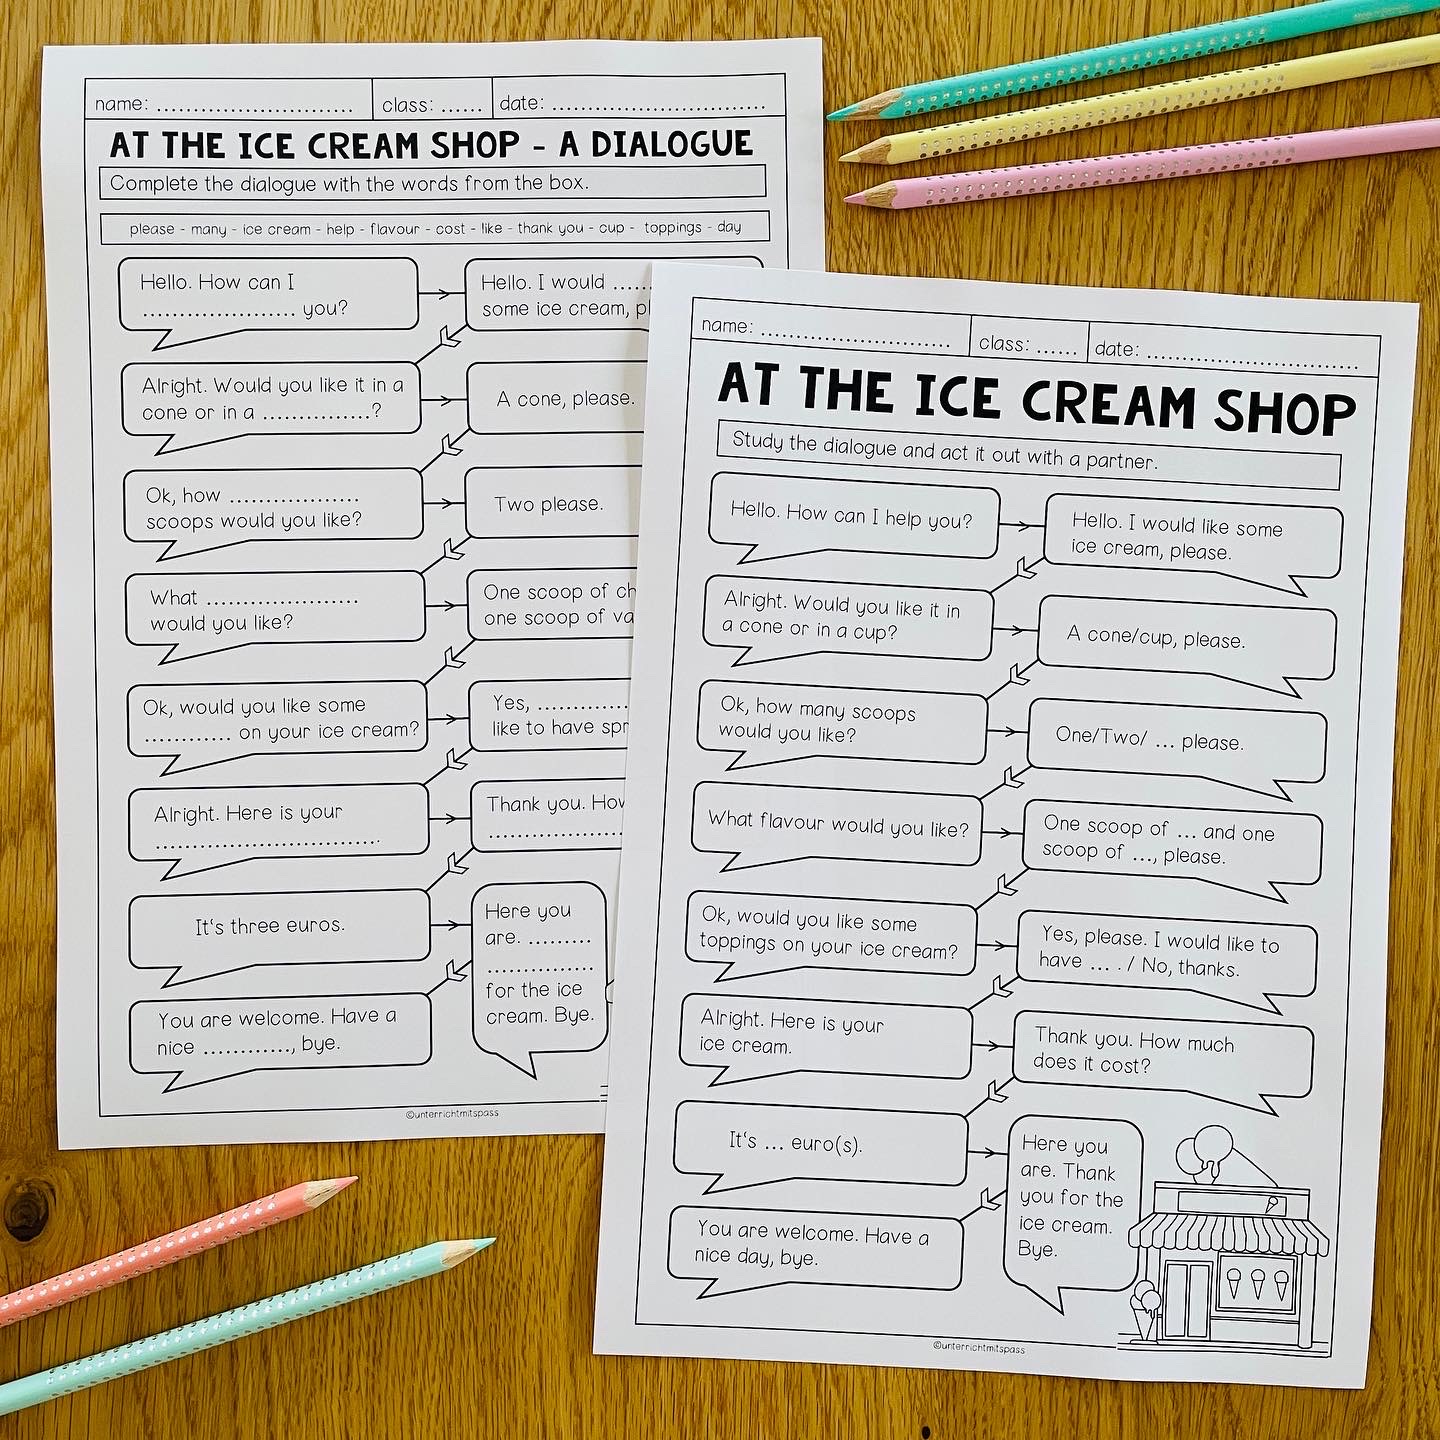 name: ............................
class: ......
date: ..............................
AT THE ICE CREAM SHOP - A DIALOGUE
Complete the dialogue with the words from the box.
please - many - ice cream - help - flavour - cost - like - thank you - cup - toppings - day
Hello. How can I
..................... you?
Hello. I would ......
some ice cream,
Alright. Would you like it in a
cone or in a ...............?
A cone, please.
Ok, how ..................
scoops would you like?
Two please.
What .....................
would you like?
One scoop of
one scoop of
Ok, would you like some
............ on your ice cream?
Yes, .............
like to have
Alright. Here is your
...............................
Thank you.
...................
It's three euros.
Here you
are. .........
...............
for the ice
cream. Bye.
You are welcome. Have a
nice ............, bye.
©unterrichtmitspass
name: ...........................
class: ......
date: ..............................
AT THE ICE CREAM SHOP
Study the dialogue and act it out with a partner.
Hello. How can I help you?
Hello. I would like some
ice cream, please.
Alright. Would you like it in
a cone or in a cup?
A cone/cup, please.
Ok, how many scoops
would you like?
One/Two/ ... please.
What flavour would you like?
One scoop of ... and one
scoop of ..., please.
Ok, would you like some
toppings on your ice cream?
Yes, please. I would like to
have ... . / No, thanks.
Alright. Here is your
ice cream.
Thank you. How much
does it cost?
It's ... euro(s).
Here you
are. Thank
you for the
ice cream.
Bye.
You are welcome. Have a
nice day, bye.
©unterrichtmitspass